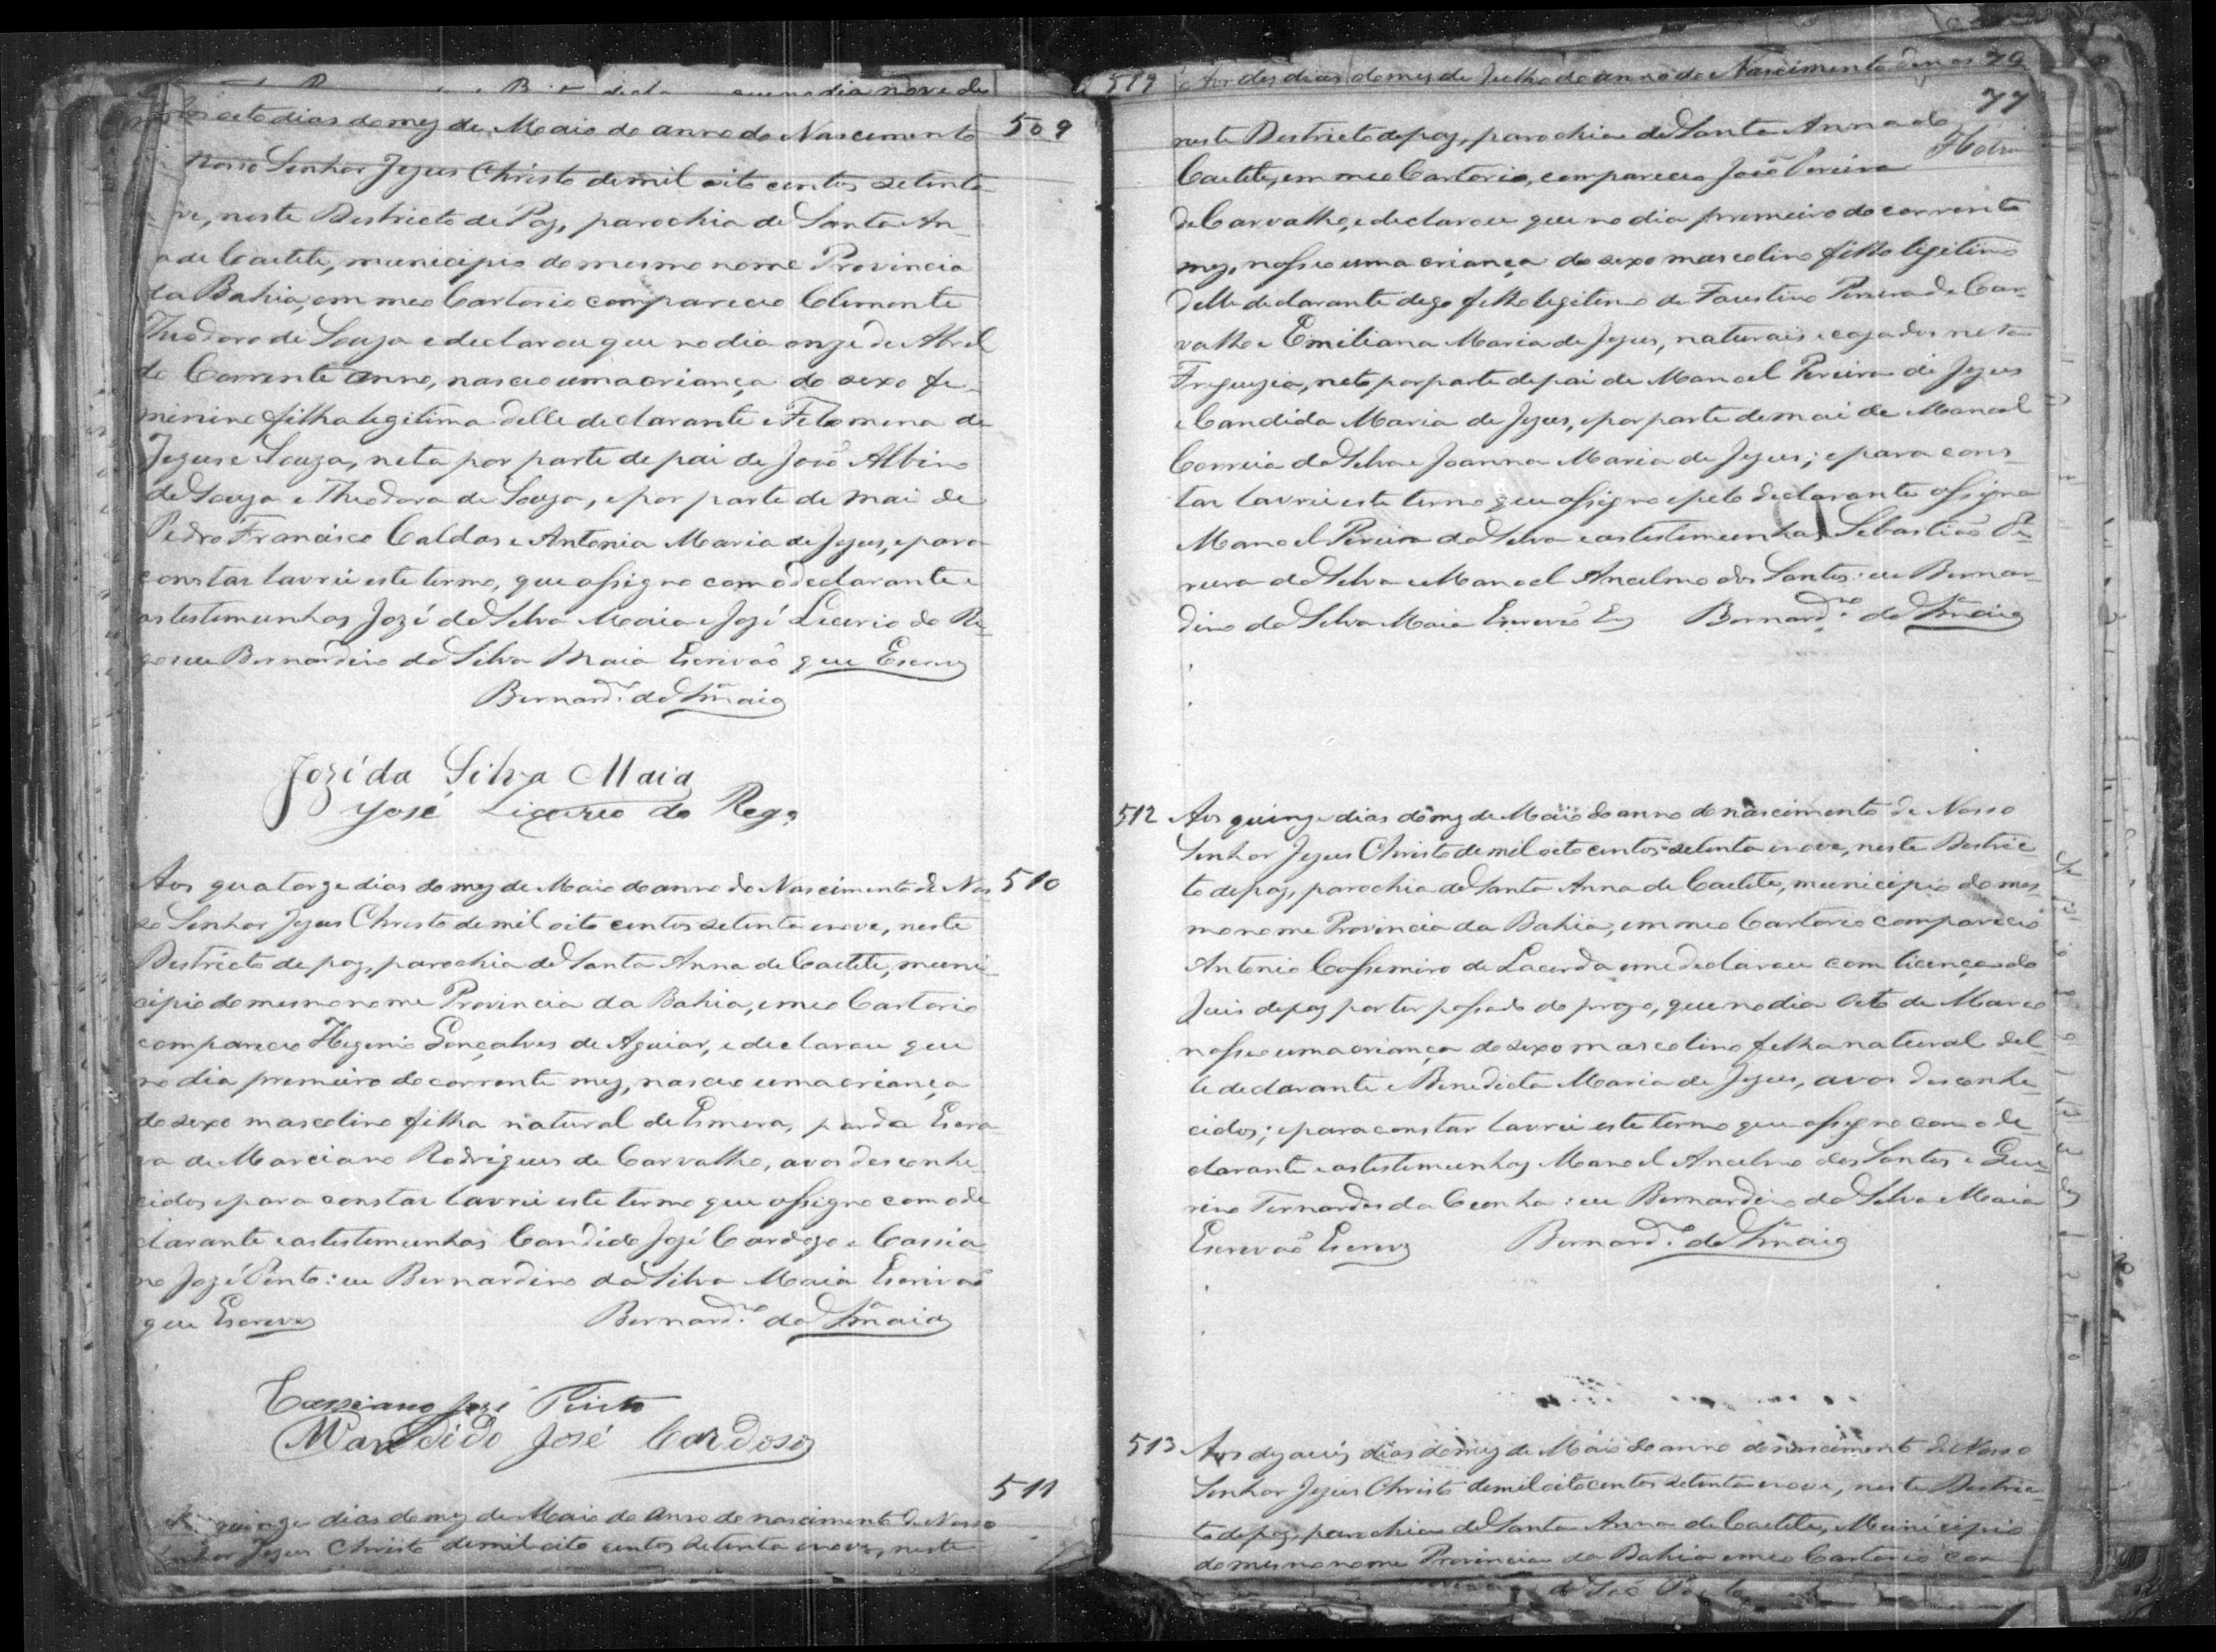 que no dia nove de
oito dias do mez de Maio do anno do Nascimento 509
Nosso Senhor Jezus Christo de mil oito centos setenta
ve, neste Destricto de Paz, parochia de Santa An-
a de Caetite, municipio do mesmo nome Provincia
da Bahia, em meo Cartorio compareceo Clemente
Theodoro de Souza e declarou que no dia onze de Abril
do Corrente anno, nasceo uma criança do sexo fe-
minino filha legitima delle declarante e Felomena de
Jezus e Souza, neta por parte de pai de João Albino
de Souza e Theodora de Souza, e por parte de mai de
Pedro Francisco Caldas e Antonia Maria de Jezus, e para
constar lavrei este termo, que assigno com o declarante e
as testemunhas Jozé da Silva Maia e Jozé Licerio do Re-
go: eu Bernardino da Silva Maia Escrivão que Escrevy
Bernard.no da S.a Maia
Jozé da Silva Maia
José Licerio do Rego
Aos quatorze dias do mez de Maio do anno do Nascimento de Nos- 510
so Senhor Jezus Christo de mil oito centos setenta e nove, neste
Destricto de paz, parochia de Santa Anna de Caetite, muni-
cipio do mesmo nome Provincia da Bahia, e meo Cartorio
compareceo Higenio Gonçalves de Aguiar, e declarou que
no dia premeiro do corrente mez, nasceo uma criança
do sexo mascolino filha natural de Esmera, parda Escra-
va de Marciano Rodrigues de Carvalho, avos desconhe-
cidos e para constar lavrei este termo que assigno com o de
clarante e as testemunhas Candido Jozé Cardozo e Cassia
no Jozé Pinto: eu Bernardino da Silva Maia Escrivão
que Escrevy Bernard.no da S.a Maia
Cassiano José Pinto
Candido José Cardoso
511
quinze dias do mez de Maio do Anno do nascimento de Nosso
Senhor Jezus Christo de mil oito centos setenta e nove, neste
519 Aos dez dias do mez de Julho do anno do Nascimento de nos 79
77
neste Destricto de paz, parochia de Santa Anna do
Caetite, em meo Cartorio, compareceo João Pereira
de Carvalho, e declarou que no dia premeiro do corrente
mez, nasseo uma criança do sexo mascolino filho legitimo
delle declarante digo filho legitimo de Faustino Pereira de Car-
valho e Emiliana Maria de Jezus, naturais e cazados nesta
Freguezia, neto por parte de pai de Manoel Pereira de Jezus
e Candida Maria de Jezus, e por parte de mai de Manoel
Correia da Silva e Joanna Maria de Jezus; e para cons-
tar lavrei este termo que assigno e pelo declarante assigna
Manoel Pereira da Silva e as testemunhas Sebastião Pe-
reira da Silva e Manoel Ancelmo dos Santos: eu Bernar-
dino da Silva Maia Escrevão Es Bernard.no da S.a Maia
512 Aos quinze dias do mez de Maio do anno do nascimento de Nosso
Senhor Jezus Christo de mil oito centos setenta e nove, neste Destric-
to de paz, parochia de Santa Anna de Caetite, municipio do mes-
mo nome Provincia da Bahia, em meo Cartorio compareceo
Antonio Cassemiro de Lacerda e me declarou com licença do
Juis de paz por ter passado do prazo, que no dia oito de Março
nasseo uma criança do sexo mascolino filha natural del-
le declarante e Benedicta Maria de Jezus, avos desconhe-
cidos; e para constar lavrei este termo que assigno com o de-
clarante e as testemunhas Manoel Ancelmo dos Santos e Gue-
rino Fernandes da Cunha: eu Bernardino da Silva Maia
Escrevão Escrevy Bernard.no da S.a Maia
513 Aos dezaceis dias do mez de Maio do anno do nascimento de Nosso
Senhor Jezus Christo de mil oito centos setenta e nove, neste Destric-
to de paz, parochia de Santa Anna de Caetite, Municipio
do mesmo nome Provincia da Bahia e meo Cartorio com